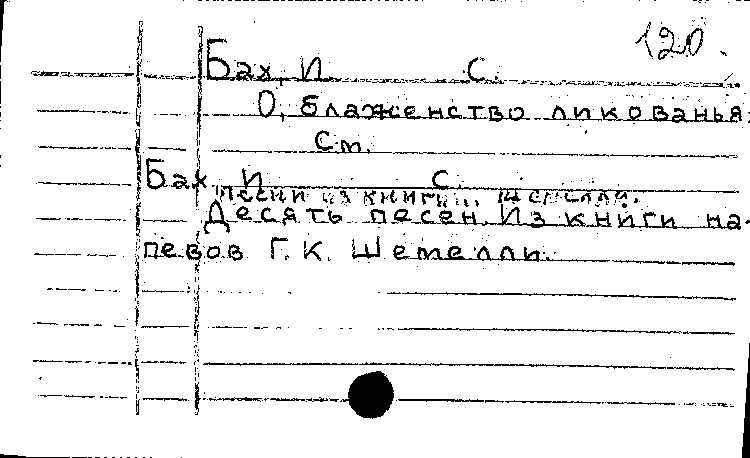 120.
Бах, И. С.
О, блаженство ликованья.
См.
Бах, И. С.
Песни из книги... Шемелли.
Десять песен. Из книги на-
певов Г. К. Шемелли.